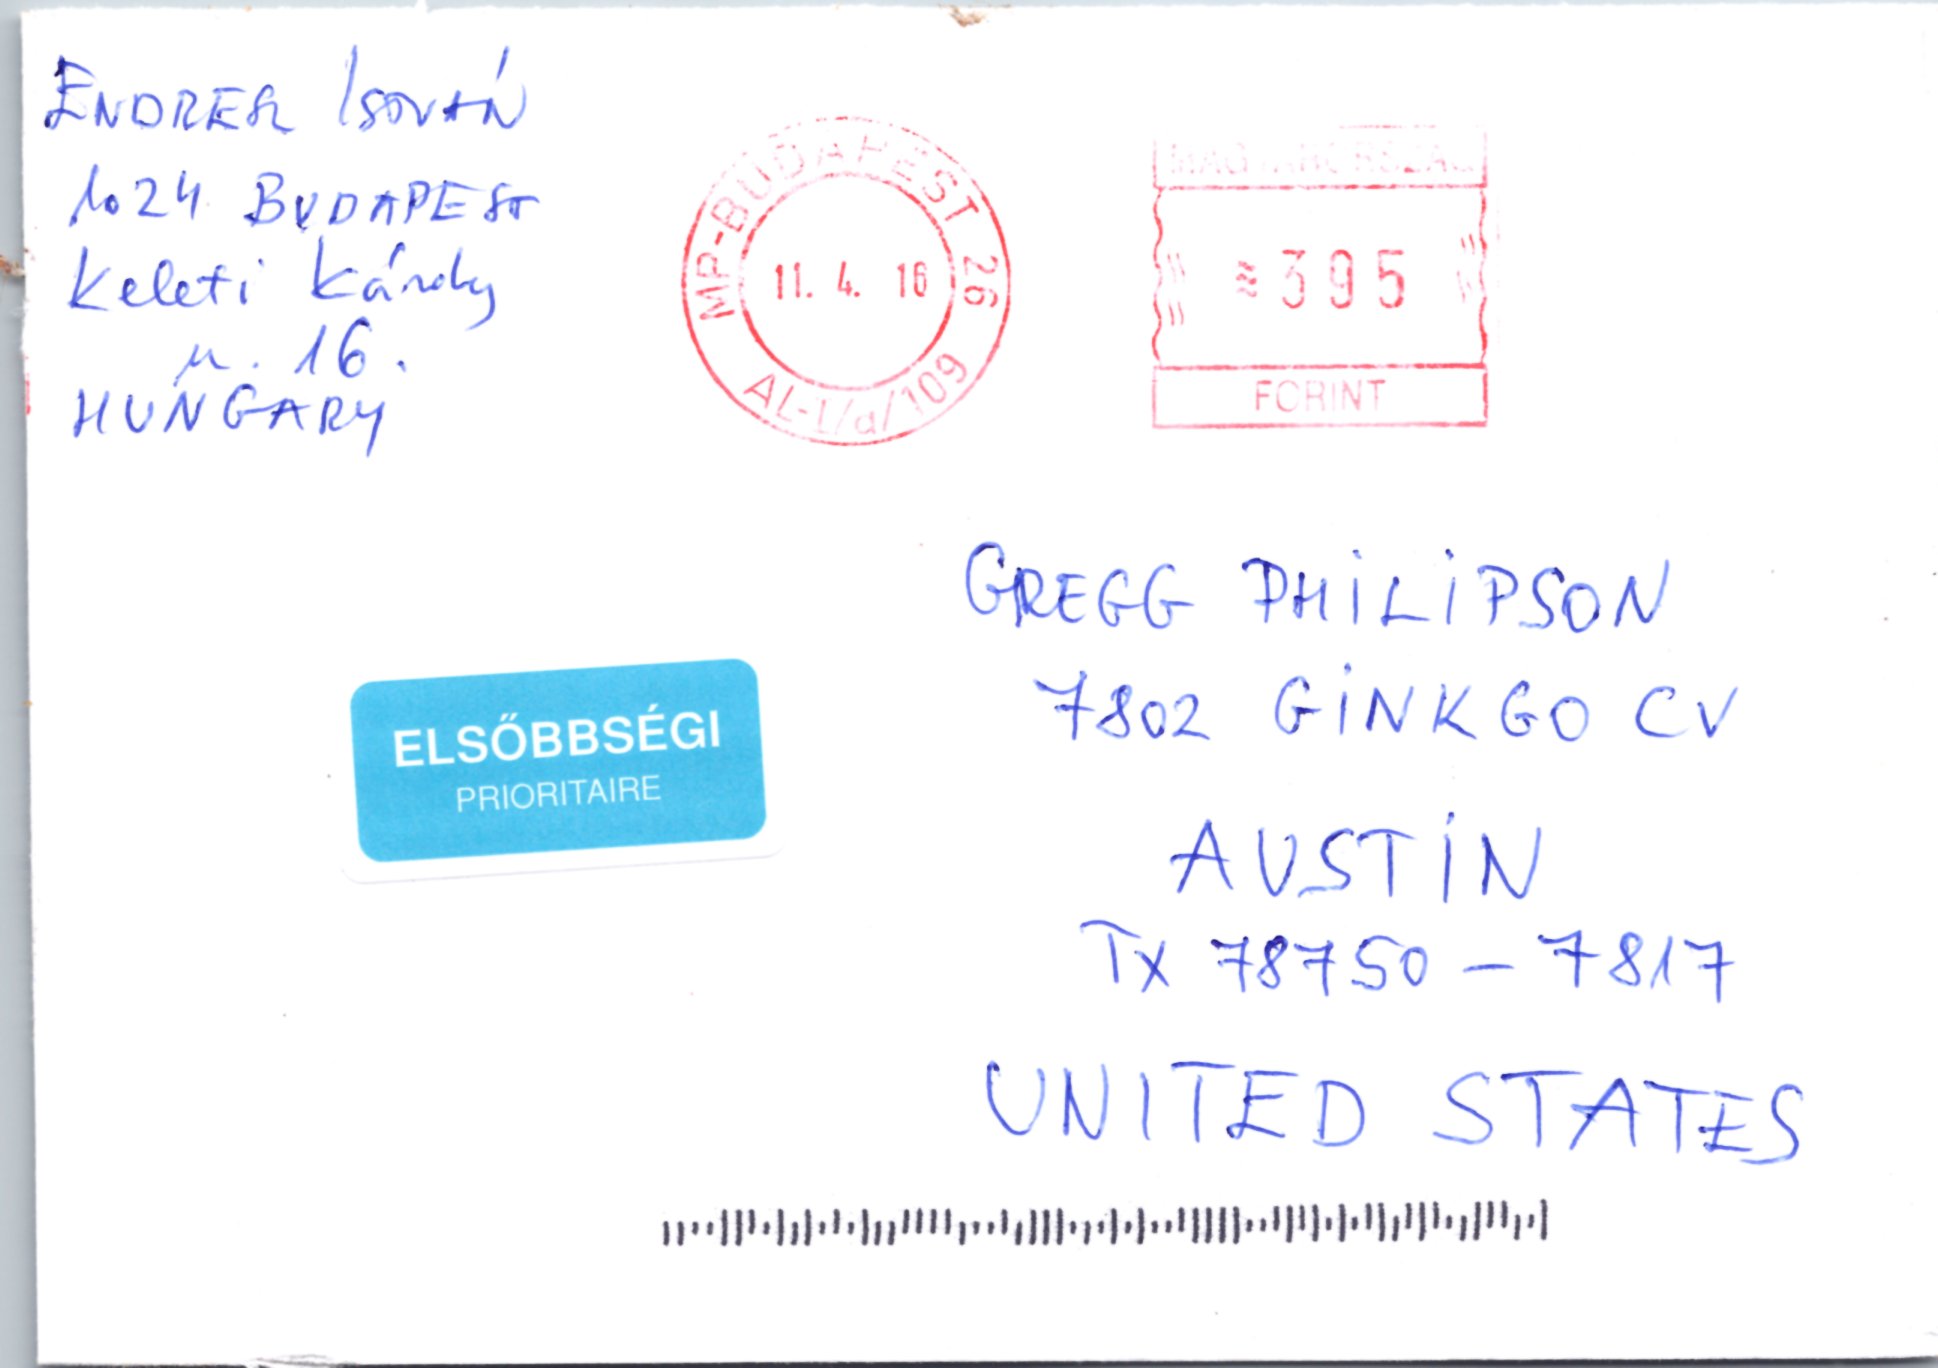 ENDRESZ ISTVÁN
1024 BUDAPEST
Keleti Károly
u. 16.
HUNGARY
MP-BUDAPEST 26
11. 4. 16
AL-1/a/109
MAGYARORSZÁG
≈395
FORINT
GREGG PHILIPSON
7802 GINKGO CV
AUSTIN
TX 78750 - 7817
UNITED STATES
ELSŐBBSÉGI
PRIORITAIRE